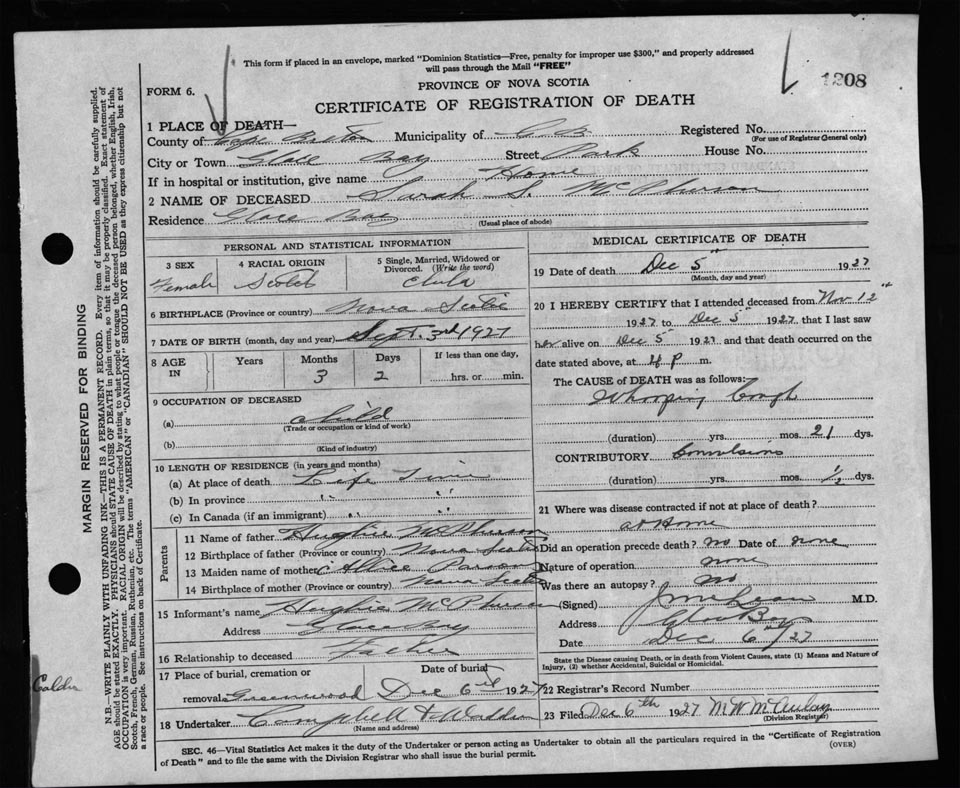 This form if placed in an envelope, marked "Dominion Statistics—Free, penalty for improper use $300," and properly addressed
will pass through the Mail "FREE"
1208
PROVINCE OF NOVA SCOTIA
FORM 6.
CERTIFICATE OF REGISTRATION OF DEATH
1 PLACE OF DEATH—
County of Cape Breton Municipality of C B Registered No.
(For use of Registrar General only)
City or Town Glace Bay Street Park House No.
If in hospital or institution, give name Home
2 NAME OF DECEASED Sarah S. McPherson
Residence Glace Bay
(Usual place of abode)
PERSONAL AND STATISTICAL INFORMATION
3 SEX 4 RACIAL ORIGIN 5 Single, Married, Widowed or Divorced. (Write the word)
Female Scotch Child
6 BIRTHPLACE (Province or country) Nova Scotia
7 DATE OF BIRTH (month, day and year) Sept. 3rd 1927
8 AGE IN Years Months Days If less than one day,
3 2 hrs. or min.
9 OCCUPATION OF DECEASED
(a) child
(Trade or occupation or kind of work)
(b)
(Kind of industry)
10 LENGTH OF RESIDENCE (in years and months)
(a) At place of death Life Time
(b) In province " "
(c) In Canada (if an immigrant) " "
Parents
11 Name of father Hughie McPherson
12 Birthplace of father (Province or country) Nova Scotia
13 Maiden name of mother Allice Parsons
14 Birthplace of mother (Province or country) Nova Scotia
15 Informant's name Hughie McPherson
Address Glace Bay
16 Relationship to deceased Father
17 Place of burial, cremation or Date of burial
removal Greenwood Dec 6th 1927
18 Undertaker Campbell &
(Name and address)
MEDICAL CERTIFICATE OF DEATH
19 Date of death Dec 5th 1927
(Month, day and year)
20 I HEREBY CERTIFY that I attended deceased from Nov 12th
1927 to Dec 5th 1927, that I last saw
her alive on Dec 5th 1927 and that death occurred on the
date stated above, at 4 P m.
The CAUSE OF DEATH was as follows:
Whooping Cough
(duration) yrs. mos. 21 dys.
CONTRIBUTORY Convulsions
(duration) yrs. mos. 1/2 dys.
21 Where was disease contracted if not at place of death?
at Home
Did an operation precede death? no Date of none
Nature of operation none
Was there an autopsy? no
(Signed) J McLean M.D.
Address Glace Bay
Date Dec 6th/27
State the Disease causing Death, or in death from Violent Causes, state (1) Means and Nature of
Injury, (2) whether Accidental, Suicidal or Homicidal.
22 Registrar's Record Number
23 Filed Dec 6th 1927 M W McAulay
(Division Registrar)
SEC. 46—Vital Statistics Act makes it the duty of the Undertaker or person acting as Undertaker to obtain all the particulars required in the "Certificate of Registration
of Death" and to file the same with the Division Registrar who shall issue the burial permit. (OVER)
MARGIN RESERVED FOR BINDING
N.B.—WRITE PLAINLY WITH UNFADING INK—THIS IS A PERMANENT RECORD. Every item of information should be carefully supplied.
AGE should be stated EXACTLY. PHYSICIANS should STATE CAUSE OF DEATH in plain terms, so that it may be properly classified. Exact statement of
OCCUPATION is very important. RACIAL ORIGIN will be described by stating to what people or tongue the deceased person belonged, whether English, Irish,
Scotch, French, German, Russian, Ruthenian, etc. The terms "AMERICAN" or "CANADIAN" SHOULD NOT BE USED as they express citizenship but not
a race or people. See instructions on back of Certificate.
Calder